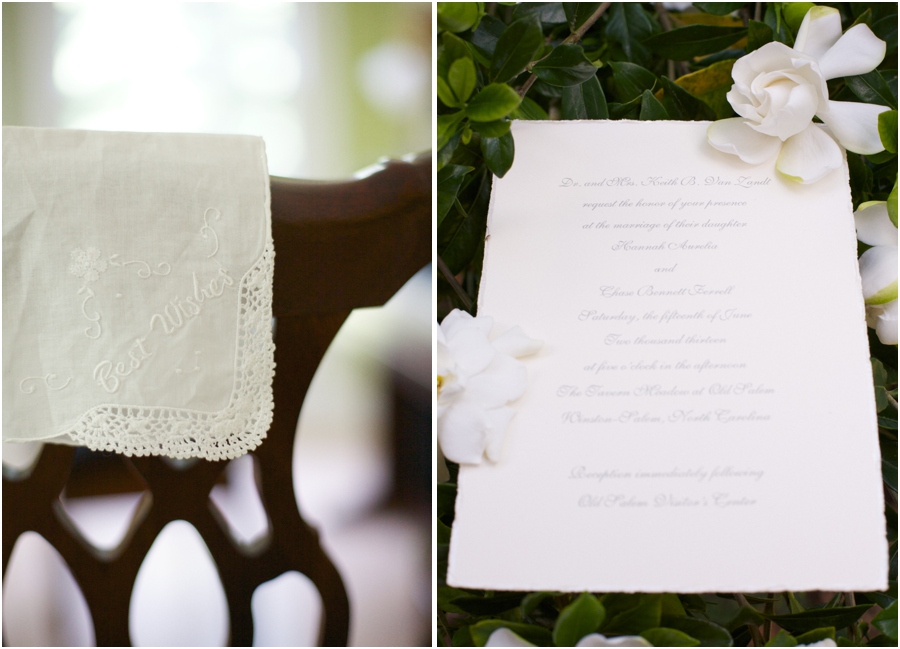 Best Wishes
Dr. and Mrs. Keith B. Van Zandt
request the honor of your presence
at the marriage of their daughter
Hannah Aurelia
and
Chase Bennett Ferrell
Saturday, the fifteenth of June
Two thousand thirteen
at five o'clock in the afternoon
The Tavern Meadow at Old Salem
Winston-Salem, North Carolina
Reception immediately following
Old Salem Visitor's Center